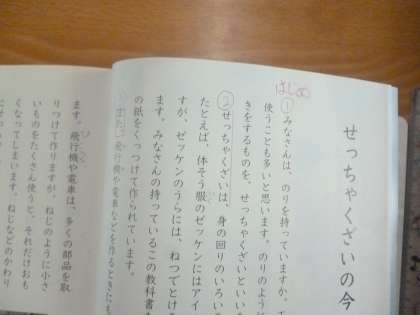 せっちゃくざいの今
はじめ
①みなさんは、のりを持っていますか。
使うことも多いと思います。のりのように
きをするものを、せっちゃくざいといい
②せっちゃくざいは、身の回りのいろい
たとえば、体そう服のゼッケンにはアイ
すが、ゼッケンのうらには、ねつでとける
ます。みなさんの持っているこの教科書も
の紙をくっつけて作られています。
また、飛行機や電車などを作るときにも
ます。飛行機や電車は、多くの部品を取
りつけて作りますが、ねじのように小さ
いものをたくさん使うと、それだけおも
くなってしまいます。ねじなどのかわり